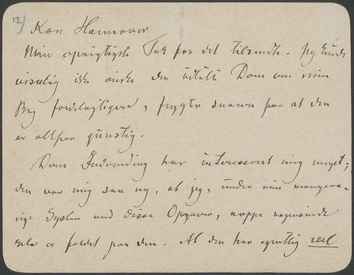 2) Kan Hannover
Min oprigtigste Tak for det tilsendte. Jeg kunde
visselig ikke ønske den udtalte Dom om min
Bog fordelagtigere, frygter snarere for at den
er altfor gunstig.
Dens Indvending har interesseret mig meget;
den var mig saa ny, at jeg, under min mangeaa-
rige Syslen med disse Opgaver, neppe nogensinde
selv er faldet paa den. At den har egentlig reel